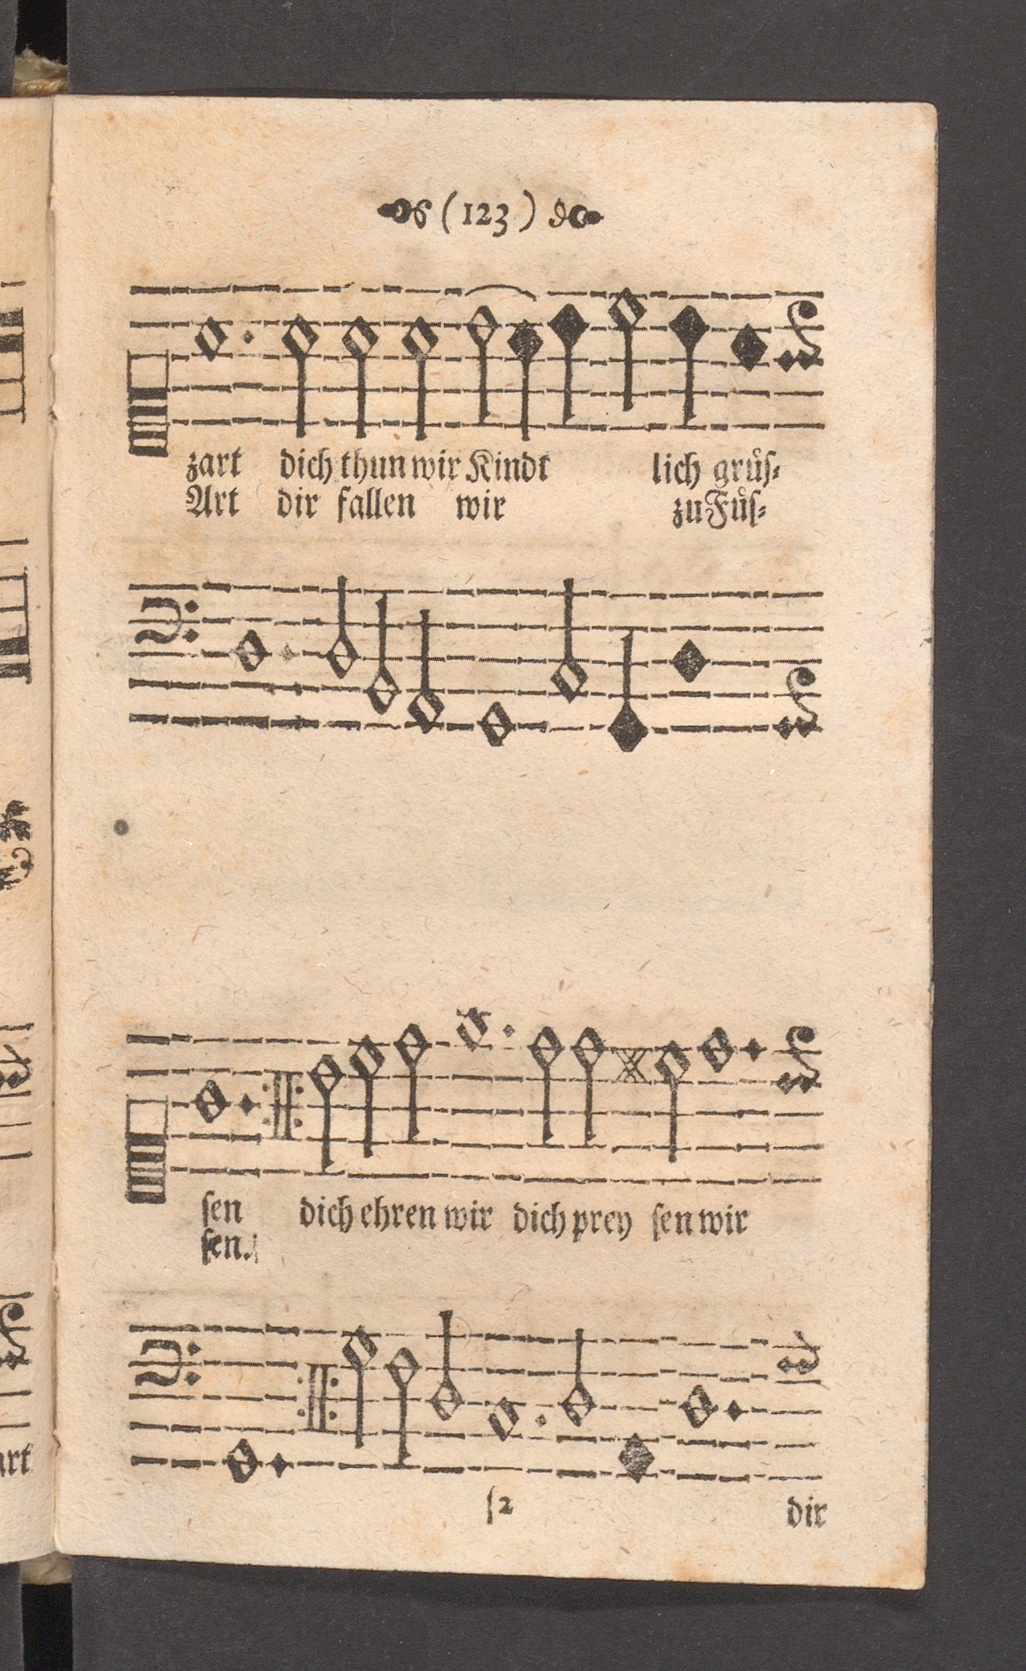 (123)
zart dich thun wir Kindt lich gruͤſ⸗
Art dir fallen wir zu Fuͤſ⸗
ſen dich ehren wir dich prey ſen wir
ſen.
ſ2 dir